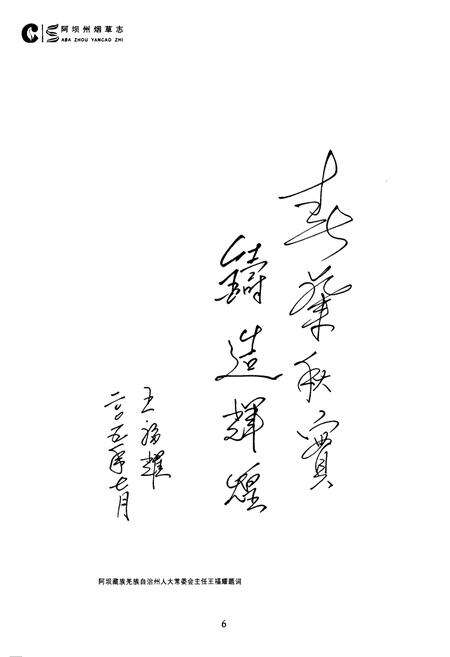 阿坝州烟草志
ABA ZHOU YANCAO ZHI
春华秋實
鑄造輝煌
王福耀
二〇〇五年七月
阿坝藏族羌族自治州人大常委会主任王福耀题词
6